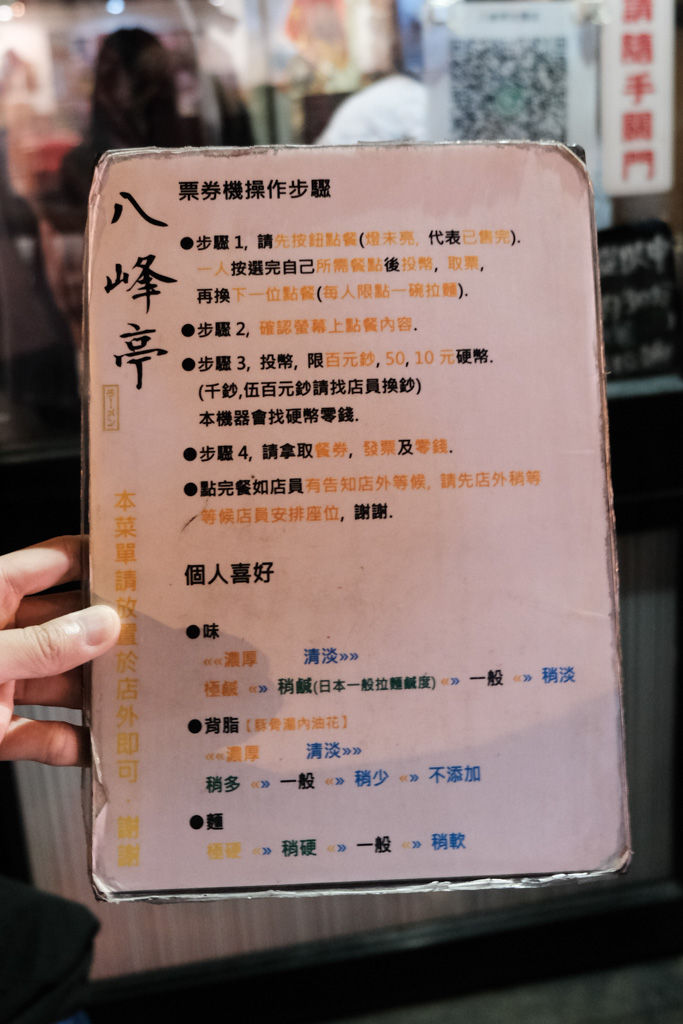 請隨手關門
八峰亭
ラーメン
本菜單請放置於店外即可．謝謝
票券機操作步驟
●步驟 1, 請先按鈕點餐(燈未亮, 代表已售完).
一人按選完自己所需餐點後投幣, 取票,
再換下一位點餐(每人限點一碗拉麵).
●步驟 2, 確認螢幕上點餐內容.
●步驟 3, 投幣, 限百元鈔, 50, 10 元硬幣.
(千鈔,伍百元鈔請找店員換鈔)
本機器會找硬幣零錢.
●步驟 4, 請拿取餐券, 發票及零錢.
●點完餐如店員有告知店外等候, 請先店外稍等
等候店員安排座位, 謝謝.
個人喜好
●味
««濃厚 清淡»»
極鹹 «» 稍鹹(日本一般拉麵鹹度) «» 一般 «» 稍淡
●背脂【豚骨湯內油花】
««濃厚 清淡»»
稍多 «» 一般 «» 稍少 «» 不添加
●麵
極硬 «» 稍硬 «» 一般 «» 稍軟